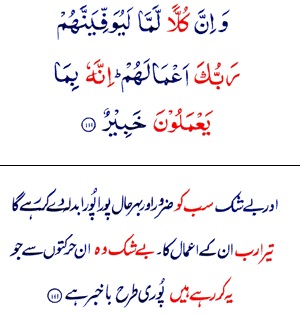 وَ اِنَّ كُلًّا لَّمَّا لَيُوَفِّيَنَّهُمْ
رَبُّكَ اَعْمَالَهُمْ ؕ اِنَّهٗ بِمَا
يَعْمَلُوْنَ خَبِيْرٌ ۝۱۱۱
اور بے شک سب کو ضرور اور بہر حال پورا پُورا بدلہ دے کر رہے گا
تیرا رب ان کے اعمال کا۔ بے شک وہ ان حرکتوں سے جو
یہ کر رہے ہیں پُوری طرح باخبر ہے ۝۱۱۱